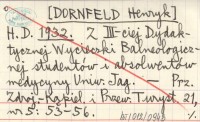 [DORNFELD Henryk]
H. D. 1932. Z III-ciej Dydak-
tycznej Wycieczki Balneologicz-
nej studentów i absolwentów
medycyny Univ. Jag. — Prz.
Zdroj.-Kąpiel. i Przew. Turyst. 21,
nr 5: 53-56.